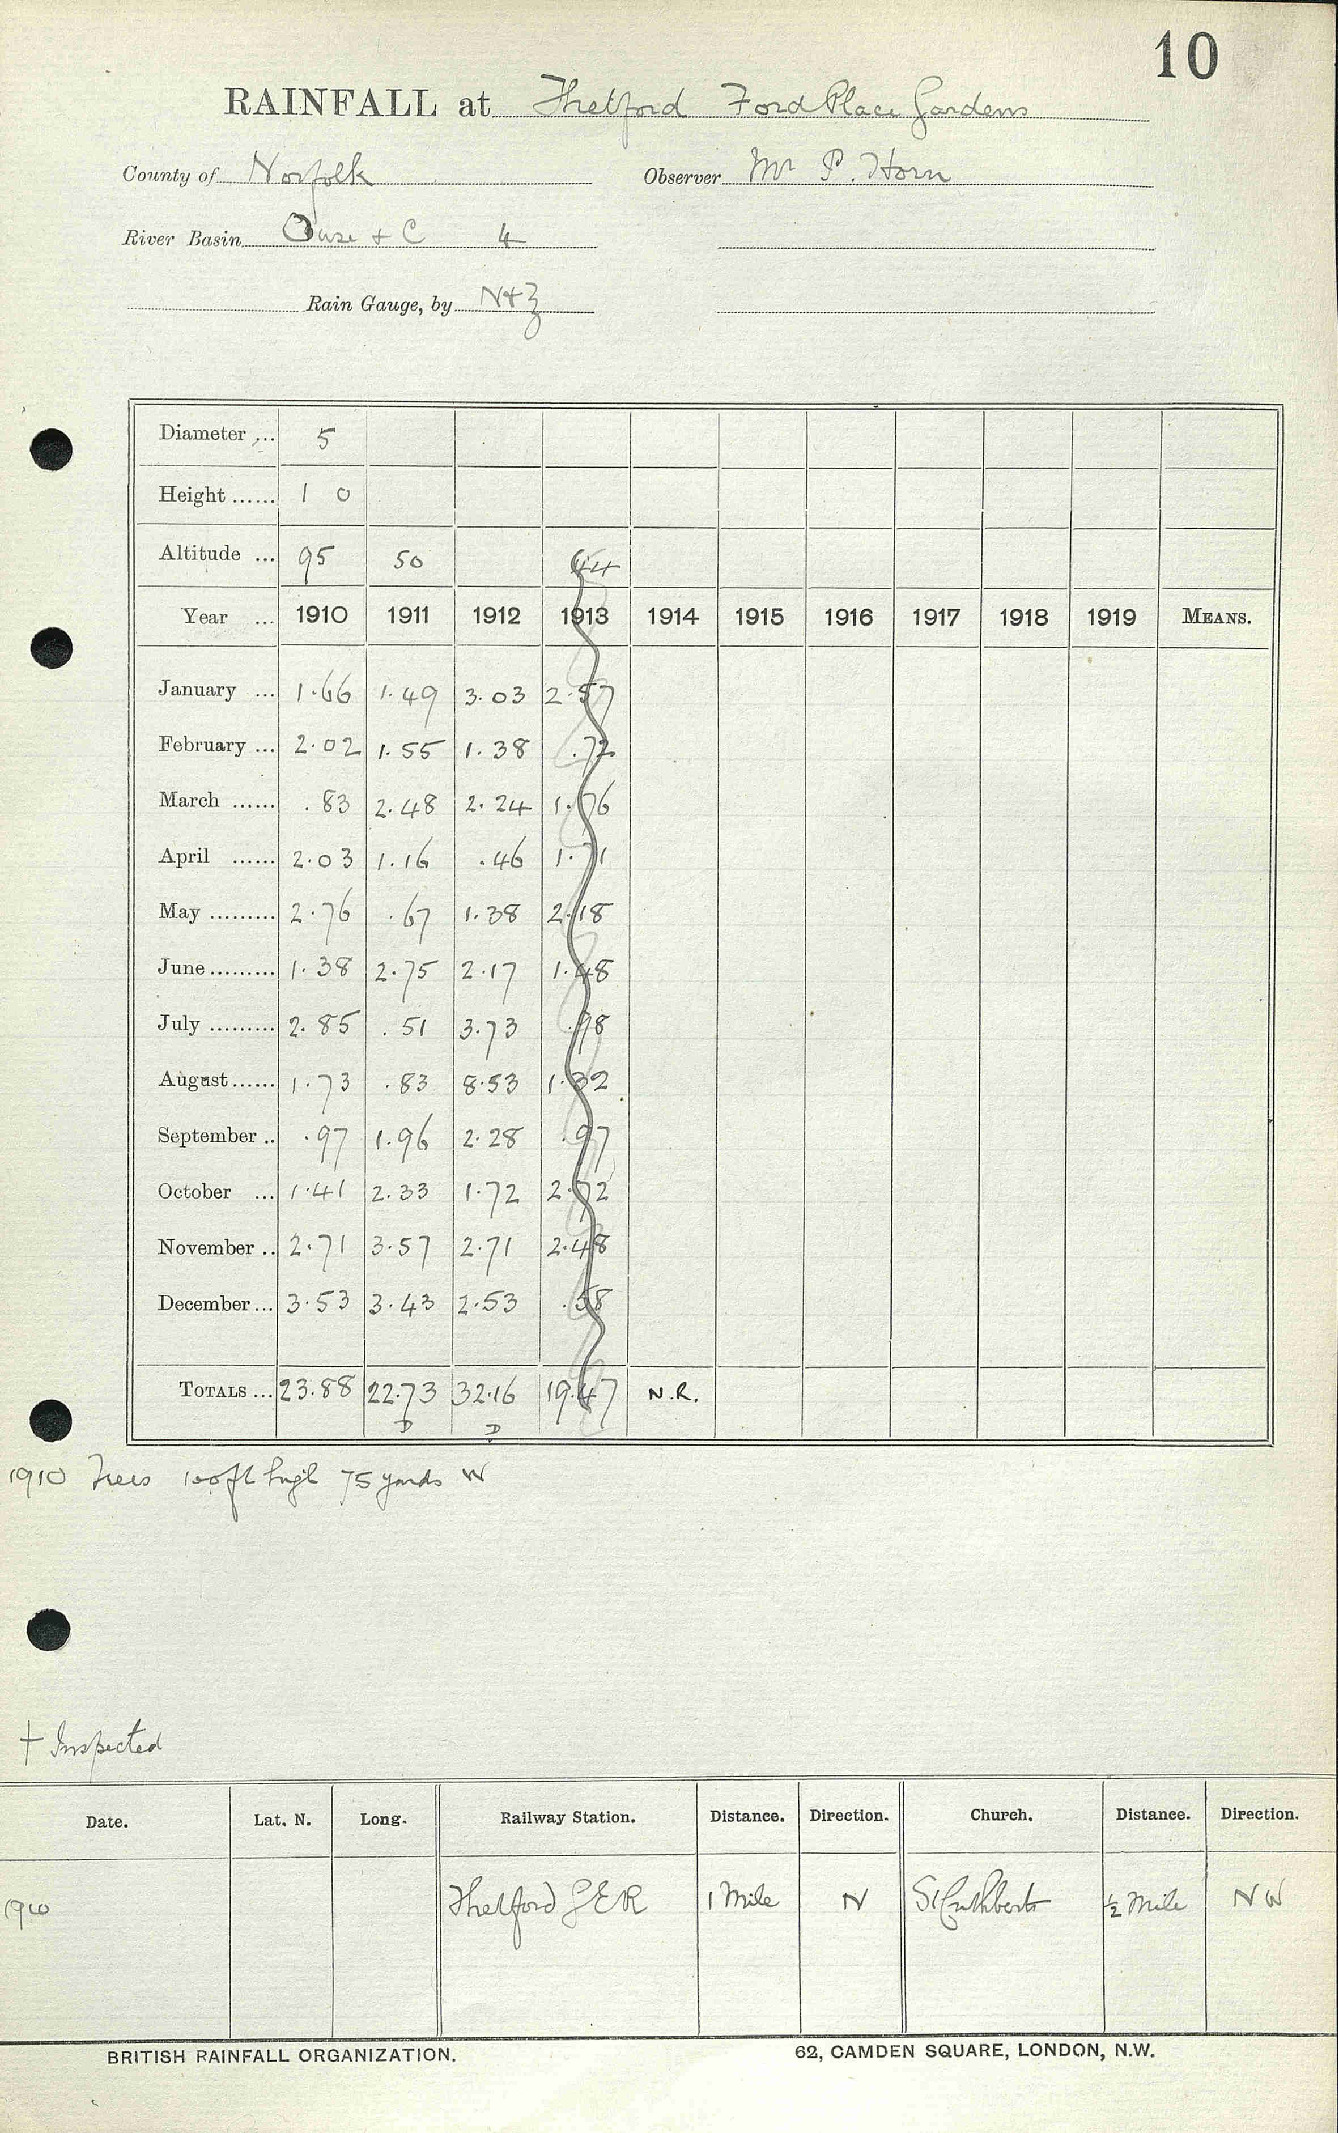 10
RAINFALL at Thetford Ford Place Gardens
County of Norfolk Observer Mr P. Horn
River Basin Ouse + C 4
Rain Gauge, by N+Z
Diameter ... 5
Height ...... 1 0
Altitude ... 95 50 44
Year ... 1910 1911 1912 1913 1914 1915 1916 1917 1918 1919 MEANS.
January ... 1.66 1.49 3.03 2.57
February ... 2.02 1.55 1.38 .72
March ...... .83 2.48 2.24 1.76
April ...... 2.03 1.16 .46 1.71
May ......... 2.76 .67 1.38 2.18
June ......... 1.38 2.75 2.17 1.48
July ......... 2.85 .51 3.73 .98
August ...... 1.73 .83 8.53 1.32
September .. .97 1.96 2.28 .97
October ... 1.41 2.33 1.72 2.72
November .. 2.71 3.57 2.71 2.48
December ... 3.53 3.43 2.53 .58
TOTALS ... 23.88 22.73 32.16 19.47 N.R.
D D
1910 Trees 100ft high 75 yards W
† Inspected
Date. Lat. N. Long. Railway Station. Distance. Direction. Church. Distance. Direction.
1910 Thetford GER 1 Mile N St Cuthberts ½ Mile NW
BRITISH RAINFALL ORGANIZATION. 62, CAMDEN SQUARE, LONDON, N.W.